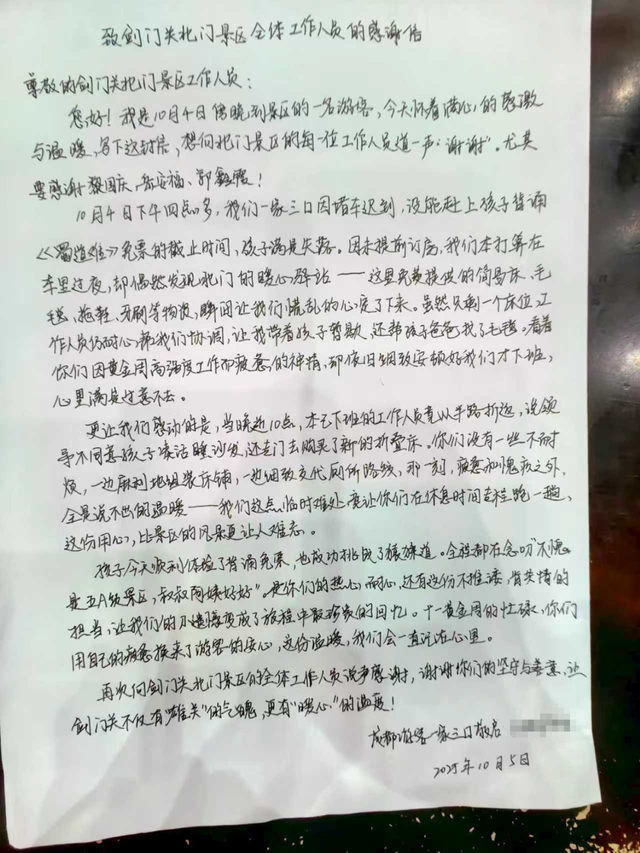 致剑门关北门景区全体工作人员的感谢信
尊敬的剑门关北门景区工作人员：
您好！我是10月4日傍晚到景区的一名游客，今天怀着满心的感激
与温暖，写下这封信，想向北门景区的每一位工作人员道一声“谢谢”。尤其
要感谢黎国庆、岳安福、郭鑫
10月4日下午四点多，我们一家三口因堵车迟到，没能赶上孩子背诵
《蜀道难》免票的截止时间，孩子满是失落。因未提前订房，我们本打算在
车里过夜，却偶然发现北门的暖心驿站——这里免费提供的简易床、毛
毯、拖鞋、牙刷等物资，瞬间让我们慌乱的心定了下来。虽然只剩一个床位，工
作人员仍耐心帮我们协调，让我带着孩子暂歇，还帮孩子爸爸找了毛毯。看着
你们因黄金周高强度工作而疲惫的神情，却依旧细致安顿好我们才下班，
心里满是过意不去。
更让我们感动的是，当晚近10点，本已下班的工作人员竟从半路折返，说领
导不同意孩子爸爸睡沙发，还专门去购买了新的折叠床。你们没有一丝不耐
烦，一边麻利地组装床铺，一边细致交代厕所路线，那一刻，疲惫和愧疚之外，
全是说不出的温暖——我们这点临时难处，竟让你们在休息时间专程跑一趟，
这份用心，比景区的风景更让人难忘。
孩子今天顺利体验了背诵免票，也成功挑战了猿猱道。全程都在念叨“不愧
是五A级景区，叔叔阿姨好好”。是你们的热心、耐心，还有这份不推诿、有共情的
担当，让我们的小遗憾变成了旅程中最珍贵的回忆。十一黄金周的忙碌，你们
用自己的疲惫换来了游客的安心，这份温暖，我们会一直记在心里。
再次向剑门关北门景区的全体工作人员说声感谢，谢谢你们的坚守与善意，让
剑门关不仅有“雄关”的气魄，更有“暖心”的温度！
成都游客一家三口敬启
2025年10月5日